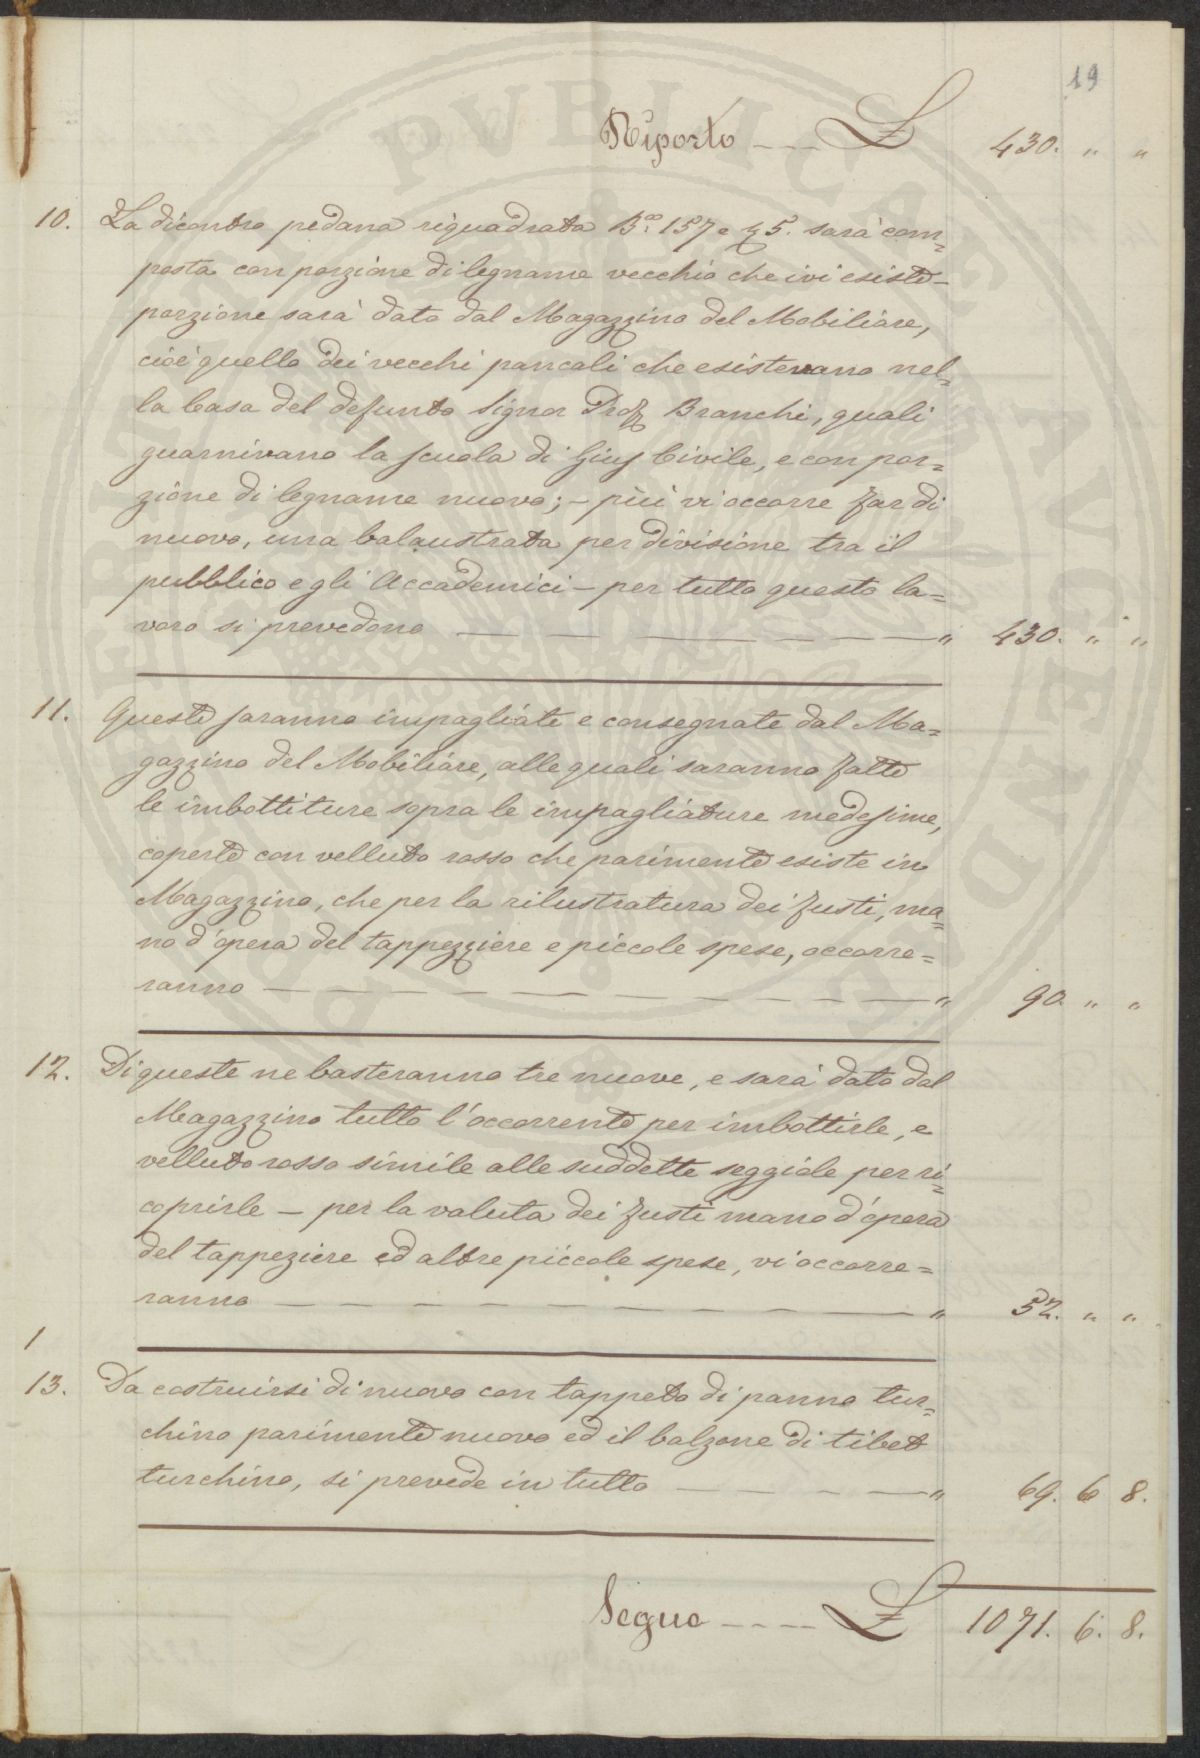 19
Riporto ---- £ 430. " "
10. La dicontro pedana riquadrata B.a 157 e 45. sarà com=
posta con porzione di legname vecchio che ivi esiste –
porzione sarà dato dal Magazzino del Mobiliare,
cioè quello dei vecchi pancali che esistevano nel=
la Casa del defunto Signor Prof Branchi, quali
guarnivano la scuola di Gius Civile, e con por=
zione di legname nuovo; – più vi occorre far di
nuovo, una balaustrata per divisione tra il
pubblico e gli Accademici – per tutto questo la=
voro si prevedono — — — — — — — " 430. " "
11. Queste saranno impagliate e consegnate dal Ma=
gazzino del Mobiliare, alle quali saranno fatte
le imbottiture sopra le impagliature medesime,
coperte con velluto rosso che parimente esiste in
Magazzino, che per la rilustratura dei fusti, ma=
no d'opera del tappezziere e piccole spese, occorre=
ranno — — — — — — — — — — " 90 " "
12. Di queste ne basteranno tre nuove, e sarà dato dal
Magazzino tutto l'occorrente per imbottirle, e
velluto rosso simile alle suddette seggiole per ri=
coprirle – per la valuta dei fusti mano d'opera
del tappeziere ed altre piccole spese, vi occorre=
ranno — — — — — — — — — " 52. " "
1
13. Da costruirsi di nuovo con tappeto di panno tur=
chino parimente nuovo ed il balzone di tibet
turchino, si prevede in tutto — — — — " 69. 6 8.
Segue ----- £ 1071. 6. 8.
PVBLICAE
AVGENDAE